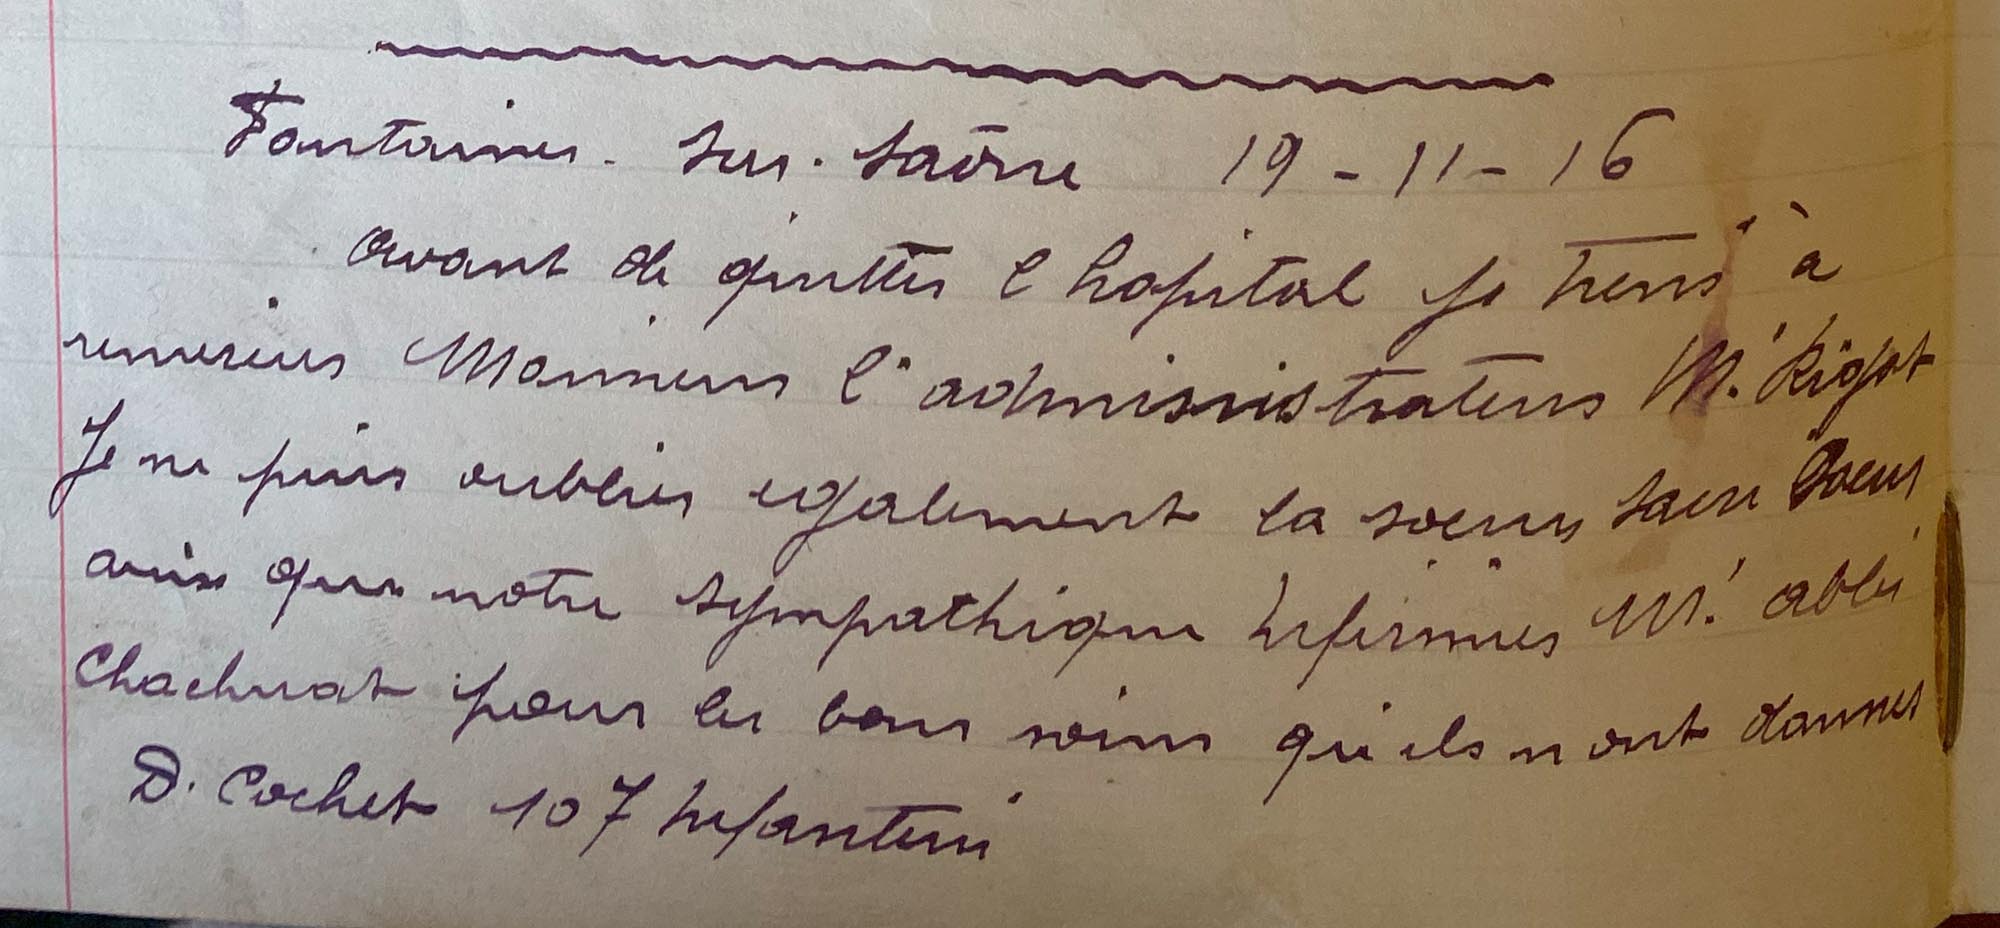 Fontaines. sur. Saône 19-11-16
avant de quitter l hopital je tiens à
remercier Monsieur l'administrateur Mr Rigot
Je ne puis oublier egalement la soeur Sacré Coeur
ainsi que notre sympathique Infirmier Mr abbé
Chachuat pour les bons soins qu'ils m ont donnes
D. Cochet 107 Infanterie